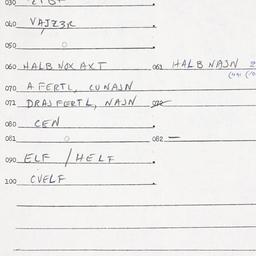 030
040 VAJZ3R
050 O
060 HALB NOX AXT 061 HALB NAJN
070 A FERTL, CU NAJN
071 DRAJ FERTL, NAJN 072
080 CEN
081 O 082 —
090 ELF / HELF
100 CVELF